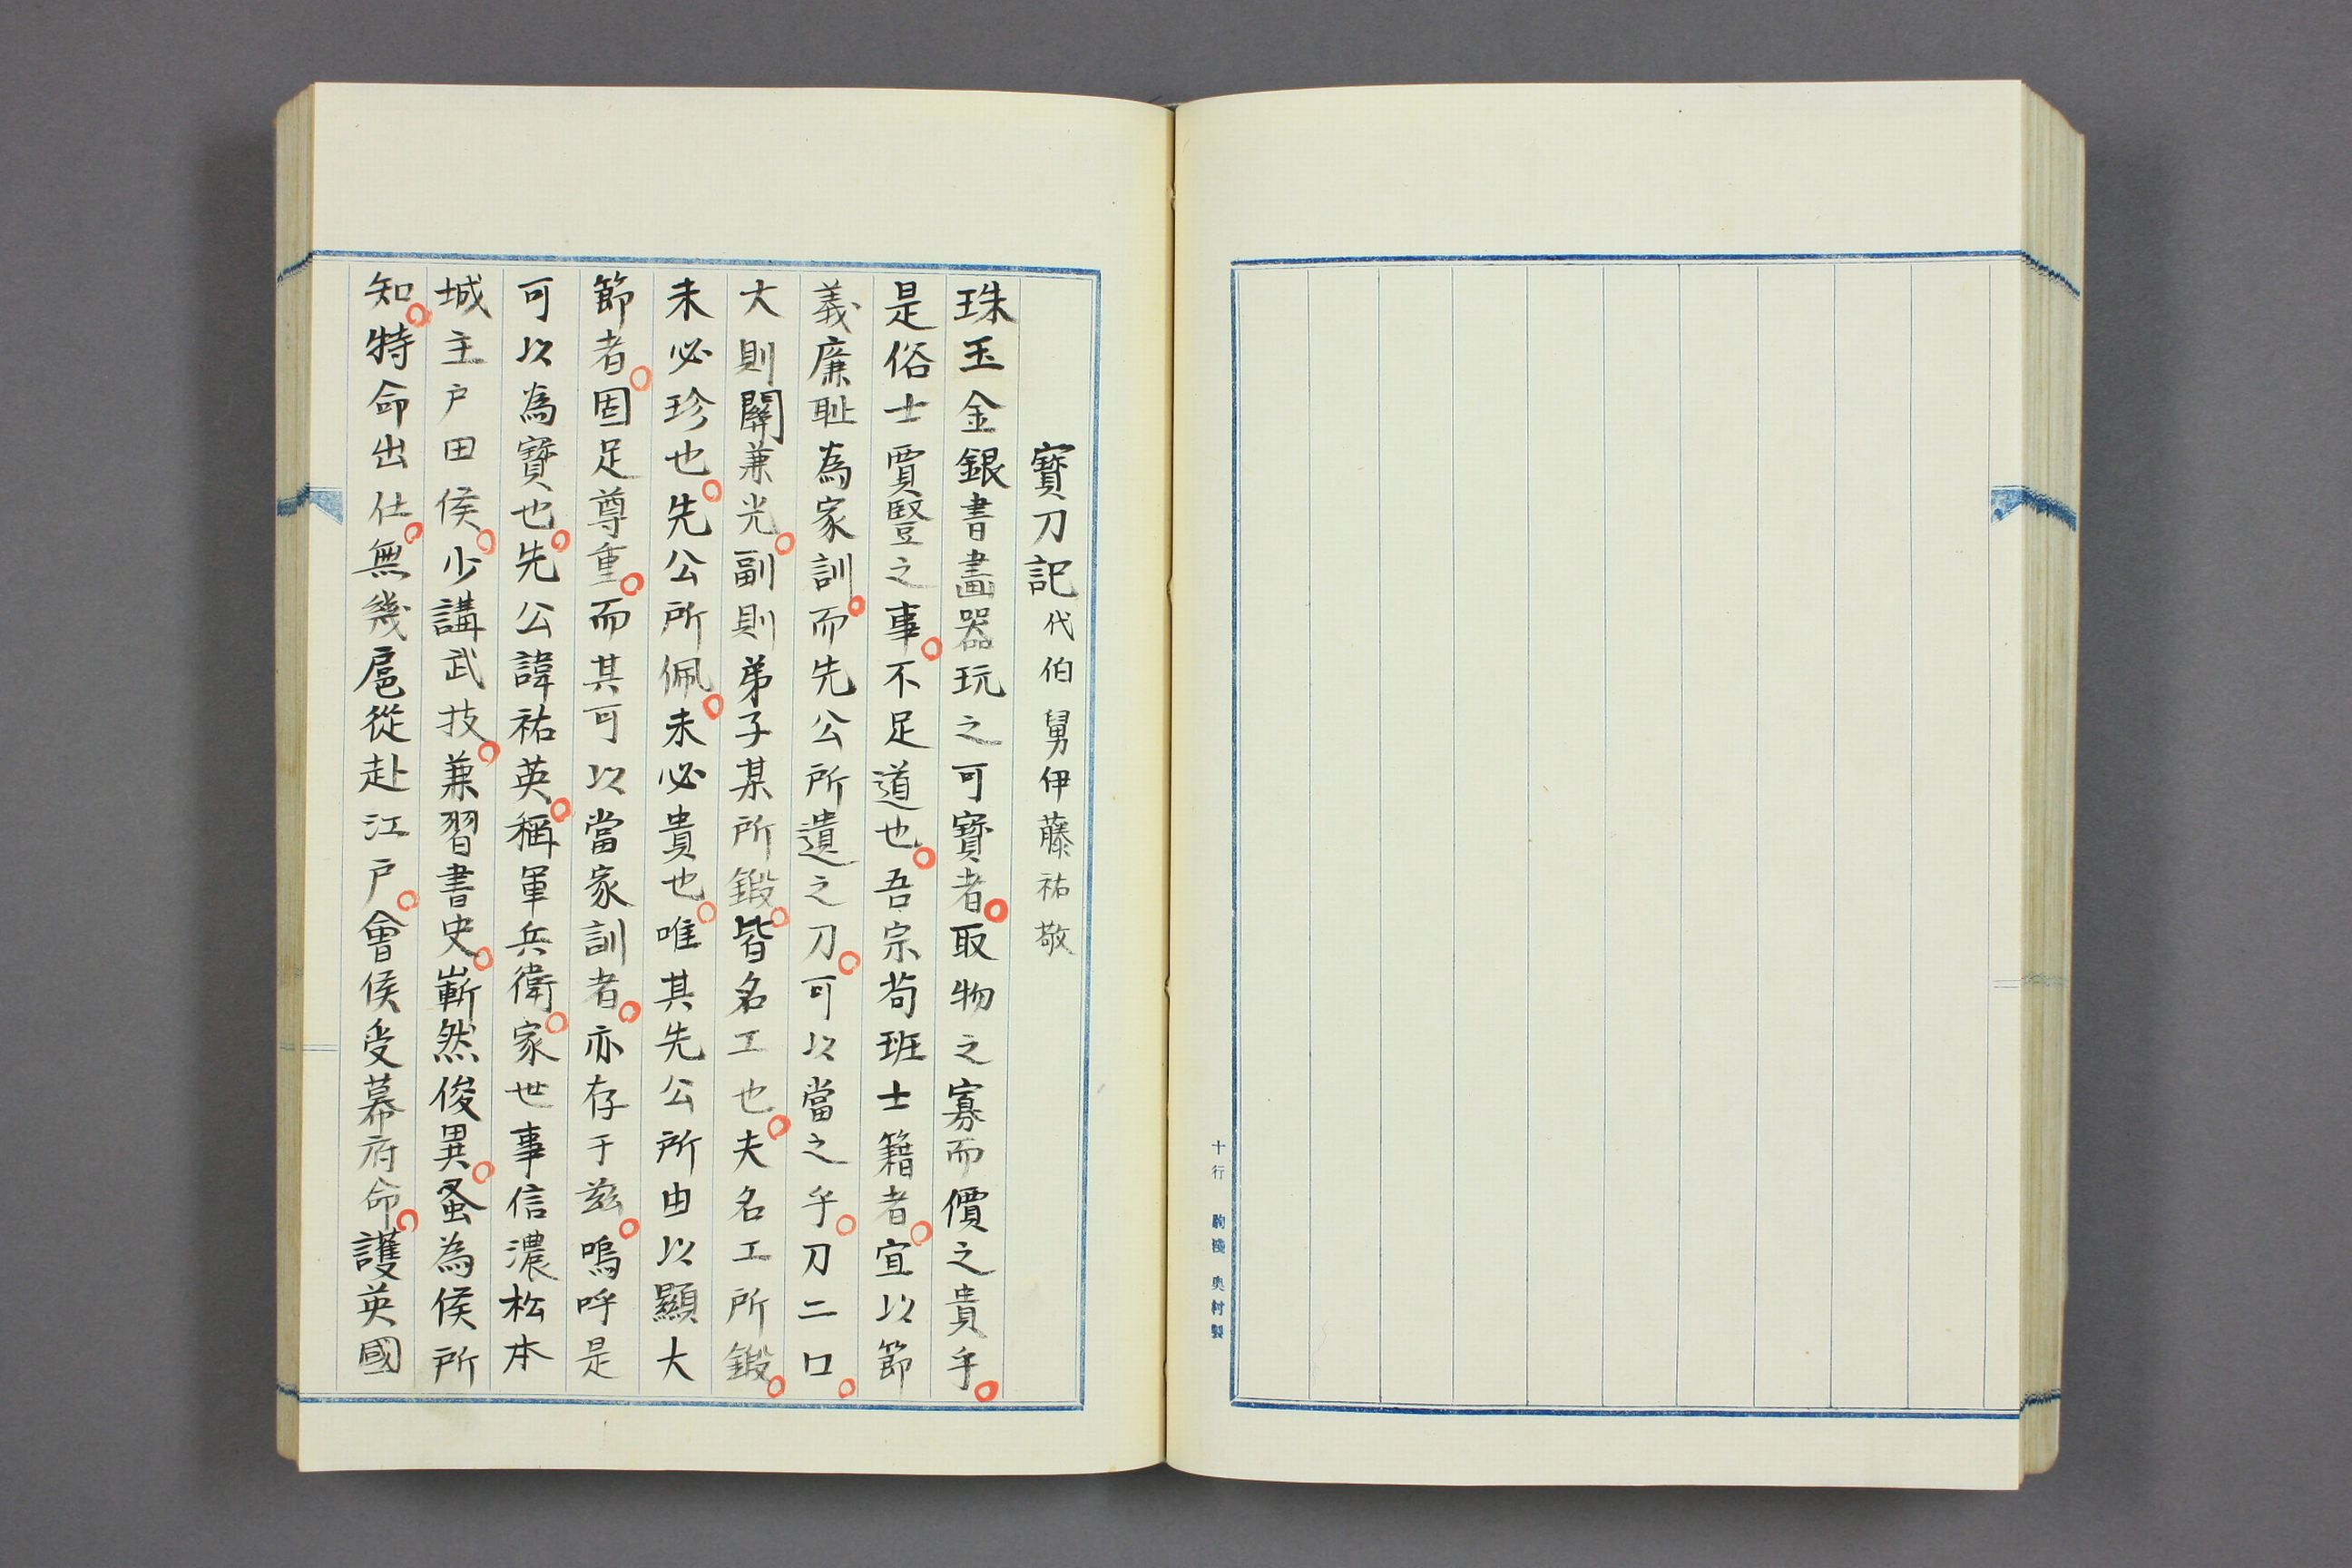 寶刀記 代伯舅伊藤祐敬
珠玉金銀書畫器玩之可寶者。取物之寡而價之貴乎。
是俗士賈豎之事。不足道也。吾宗苟班士籍者。宜以節
義廉耻為家訓。而先公所遺之刀。可以當之乎。刀二口。
大則關兼光。副則弟子某所鍛。皆名工也。夫名工所鍛。
未必珍也。先公所佩。未必貴也。唯其先公所由以顯大
節者。固足尊重。而其可以當家訓者。亦存于茲。嗚呼是
可以為寶也。先公諱祐英。稱軍兵衛。家世事信濃松本
城主戸田侯。少講武技。兼習書史。嶄然俊異。蚤為侯所
知。特命出仕。無幾扈從赴江戸。會侯受幕府命。護英國
十行 奥村製